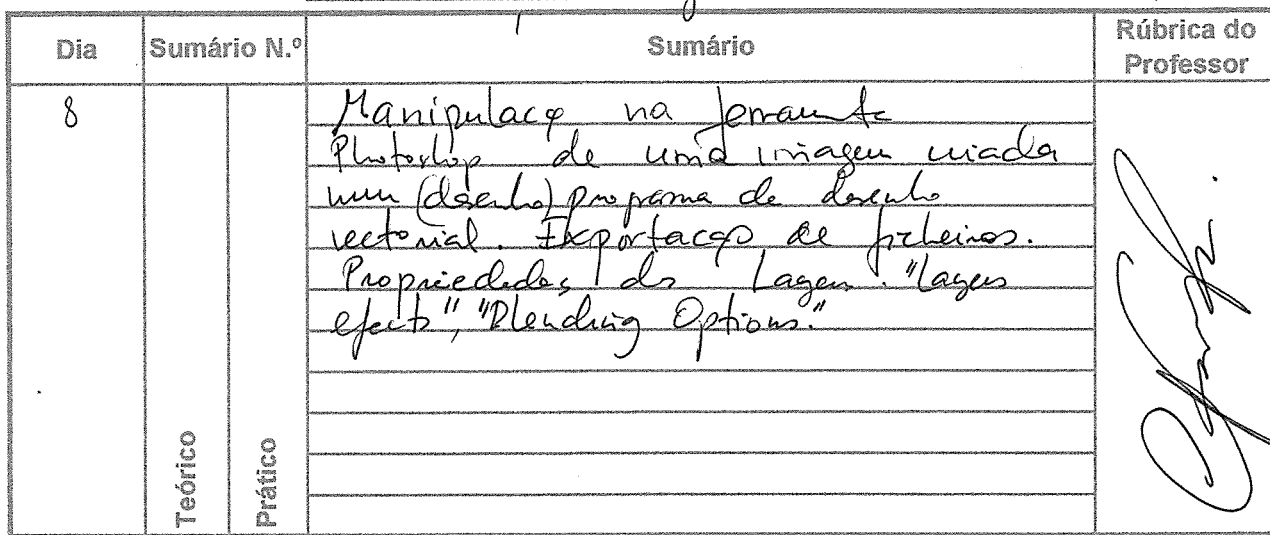 Dia Sumário N.º Sumário Rúbrica do Professor
8
Manipulaçao na ferramenta
Photoshop de uma imagem criada
num (desenho) programa de desenho
vectorial. Exportaçao de ficheiros.
Propriedades do Layer. "Layers
efects", "Blending Options."
Teórico Prático